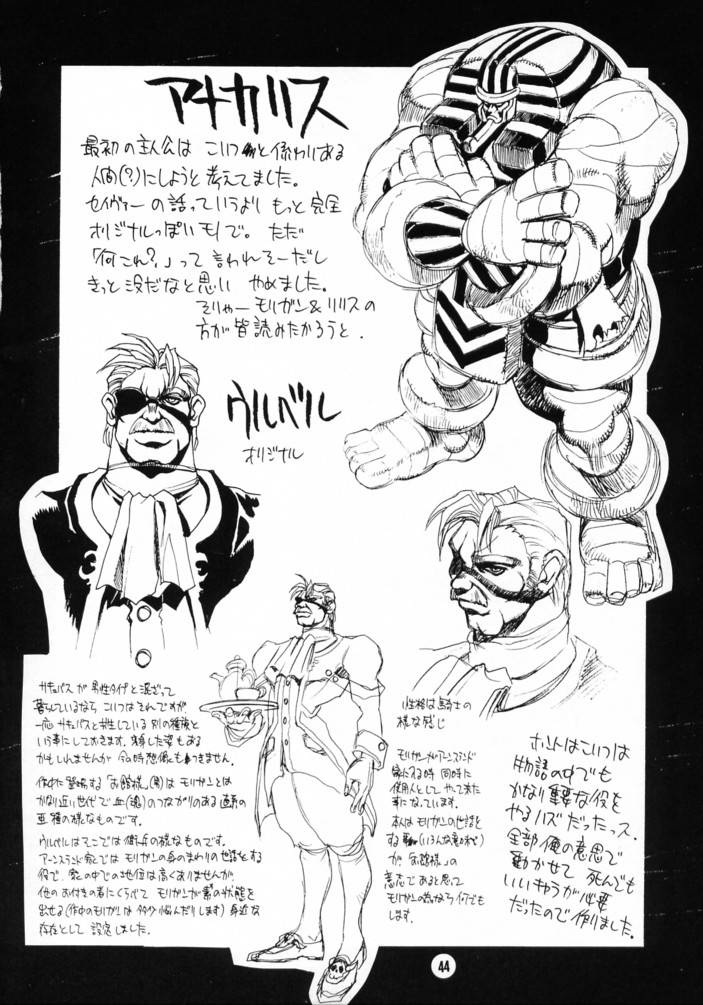 アナカリス
最初の主人公は こいつと係わりある
人間(?)にしようと考えてました。
セイヴァーの話っていうより もっと完全
オリジナルっぽいモノで。ただ
「何これ?」って言われそーだし
きっと没だなと思い やめました。
そりゃー モリガン&リリスの
方が皆読みたかろうと.
ウルベル
オリジナル
サキュバスが男性タイプと混ざって
暮らしているなら こいつはそれですが、
一応サキュバスと共生している別の種族と
いう事にしておきます。類した姿もある
かもしれませんが 今の時想像もつきません。
作中に登場する「お館様」(男)はモリガンとは
かなり近い世代で血(魂)のつながりのある直系の
亜種の様なものです。
ウルベルはそこでは傭兵の様なものです。
アーンスランド家では モリガンの身のまわりの世話をする
役で、家の中での地位は高くありませんが、
他のお付きの者にくらべて モリガンが素の状態を
出せる(作中のモリガンは多分悩んだりします)身近な
存在として 設定しました。
性格は騎士の
様な感じ
モリガンがアーンスランド
家に入る時 同時に
使用人としてやって来た
事になっています。
本人はモリガンの世話を
する事(いろんな意味で)
が「お館様」の
意志であると思って
モリガンの為なら何でも
します。
ホントはこいつは
物語の中でも
かなり重要な役を
やるハズだったっス。
全部俺の意思で
動かせて 死んでも
いいきゃらが必要
だったので作りました。
44